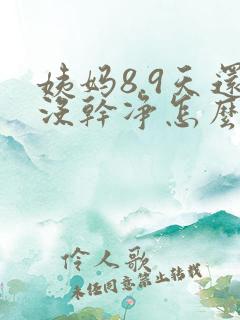 姨妈8,9天還
沒幹净怎麼
伶人歌
未经同意禁止转载